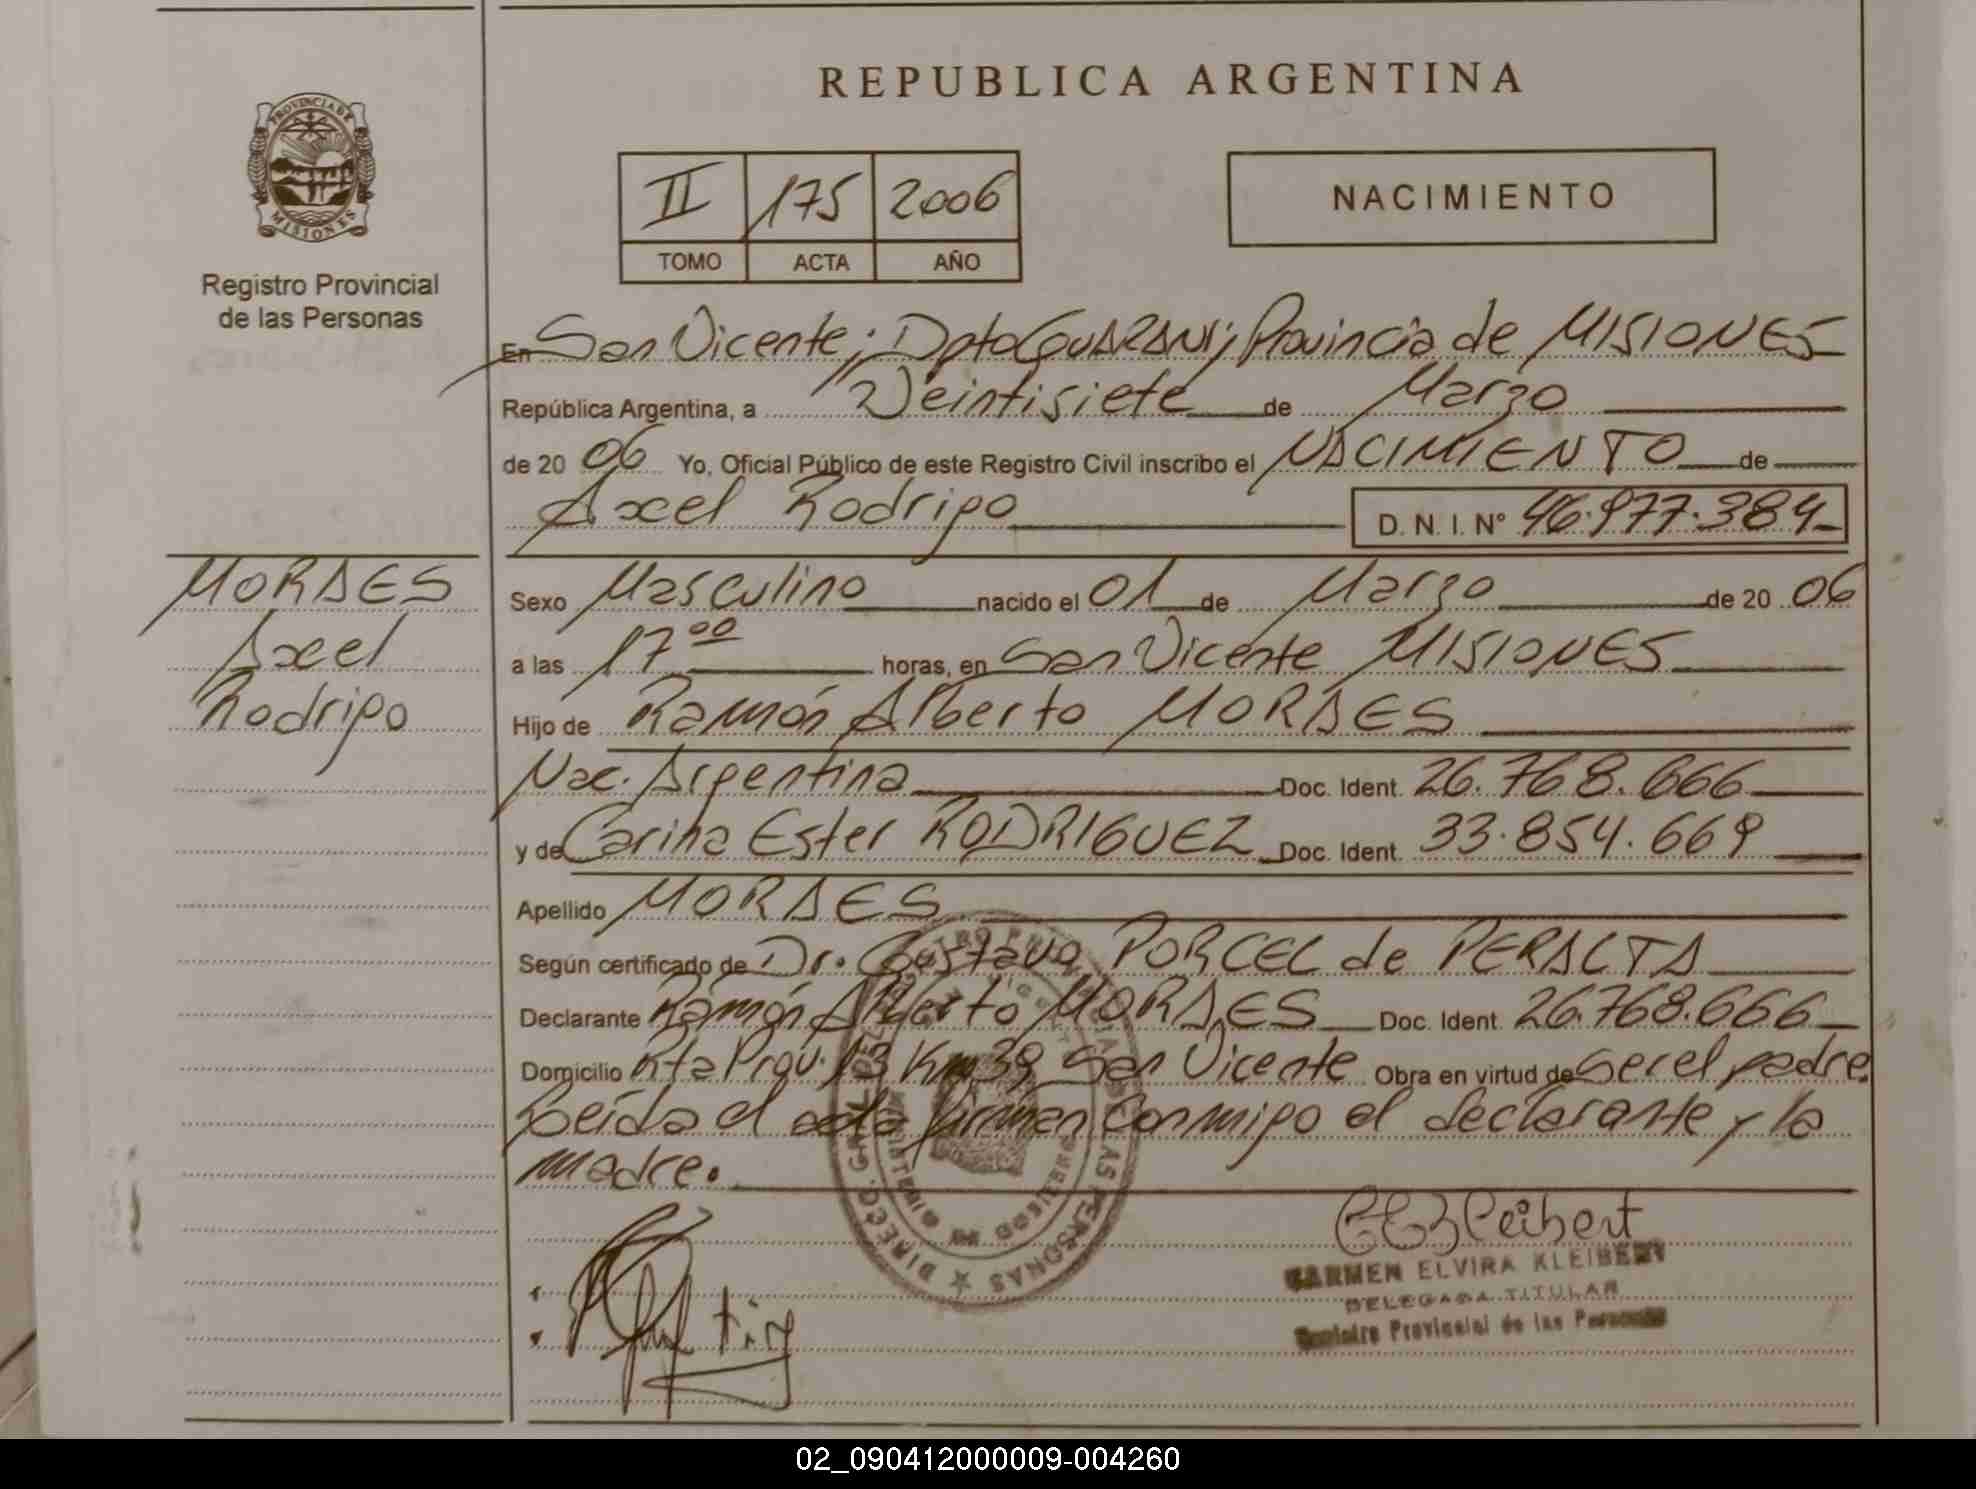 REPUBLICA ARGENTINA
PROVINCIA DE
MISIONES
Registro Provincial
de las Personas
II 175 2006
TOMO ACTA AÑO
NACIMIENTO
En San Vicente; Dpto GUARANI; Provincia de MISIONES
República Argentina, a Veintisiete de Marzo
de 20 06 Yo, Oficial Público de este Registro Civil inscribo el NACIMIENTO de
Axel Rodrigo D. N. I. Nº 46.977.384
MORAES
Axel
Rodrigo
Sexo Masculino nacido el 01 de Marzo de 20 06
a las 17 00 horas, en San Vicente MISIONES
Hijo de Ramón Alberto MORAES
Nac. Argentina Doc. Ident. 26.768.666
y de Carina Ester RODRIGUEZ Doc. Ident. 33.854.669
Apellido MORAES
Según certificado de Dr. Gustavo PORCEL de PERALTA
Declarante Ramón Alberto MORAES Doc. Ident. 26.768.666
Domicilio Rta Prov. 13 Km 39 San Vicente Obra en virtud de ser el padre
Leída el acta firman conmigo el declarante y la
madre.
CARMEN ELVIRA KLEIBERT
DELEGADA TITULAR
Registro Provincial de las Personas
02_090412000009-004260